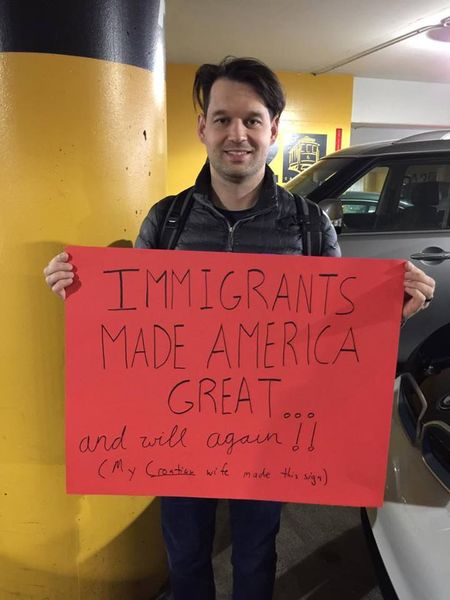 IMMIGRANTS
MADE AMERICA
GREAT...
and will again!!
(My Croatian wife made this sign)